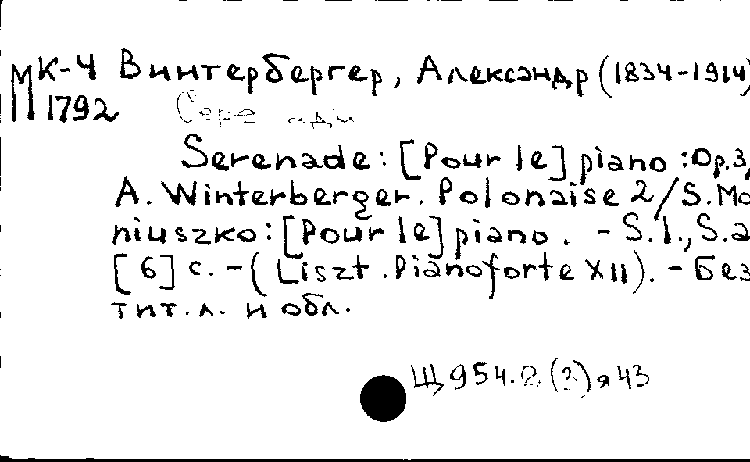 МК-4 Винтербергер, Александр (1834-1914)
П 1792
Serenade: [Pour le] piano: Op.3/
A. Winterberger. Polonaise 2/S. Mo
niuszko: [Pour le] piano. - S.l., S.a
[6] с. - (Liszt. Pianoforte XII). - Без
тит. л. и обл.
Щ954.2(3)я43